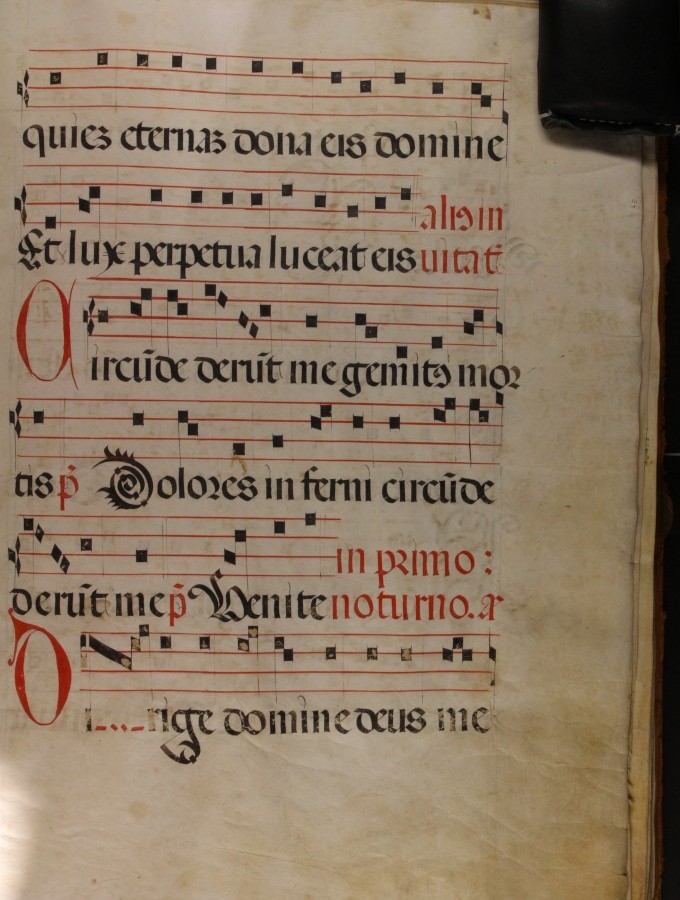 quieʒ eternaʒ dona eis domine
Et lux perpetua luceat eis alius in uitat̄
Circūde derūt me gemitꝰ mor
tis p̄ Dolores in ferni circūde
derūt me p̄ Venite in primo : noturno. ā
D rige domine deus me